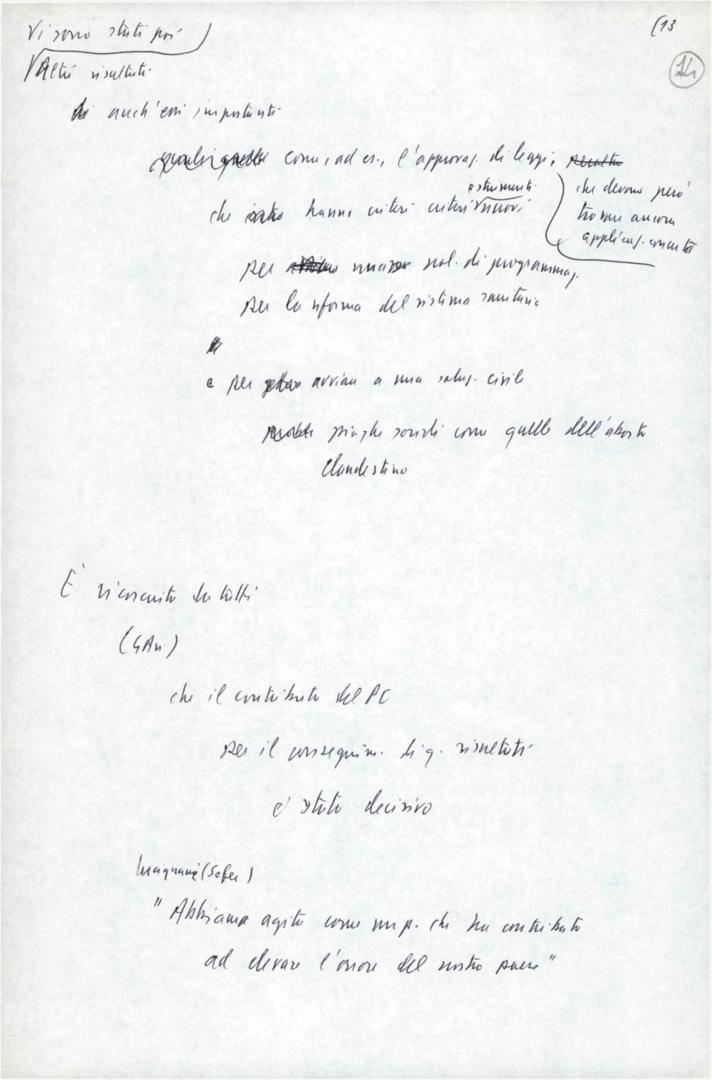 (13
14
Vi sono stati poi
Altri risultati
di anch'essi importanti
quali quelli come, ad es., l'approvaz. di leggi,
che hanno criteri criteri nuovi
e strumenti
che devono però
trovare ancora
applicaz. concreta
per una pol. di programmaz.
per la riforma del sistema sanitario
e per avviare a una soluz. civile
piaghe sociali come quelle dell'aborto
clandestino
È riconosciuto da tutti
che il contributo del PC
per il conseguim. di q. risultati
è stato decisivo
"Abbiamo agito come un p. che ha contribuito
ad elevare l'onore del nostro paese"